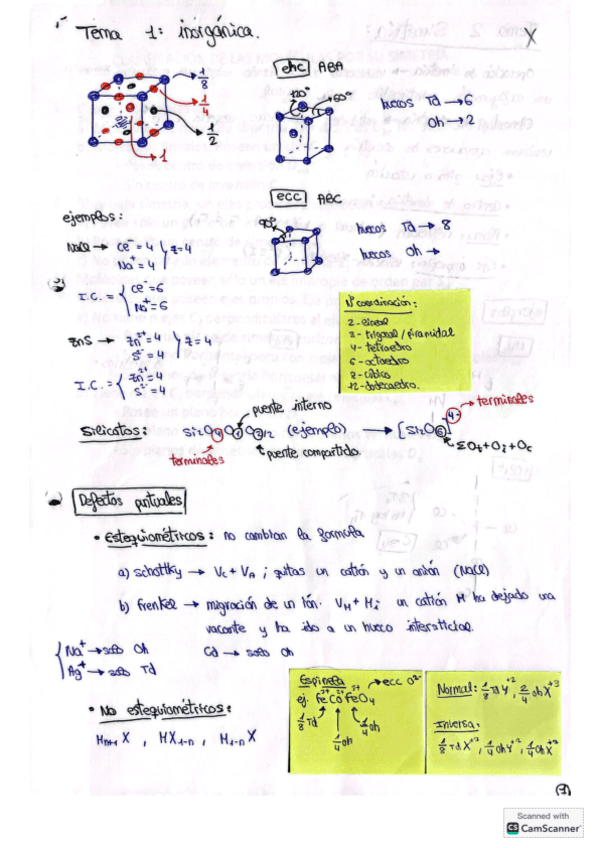 Tema 1: inorgánica.
X
1/8
1/4
1/2
1
ehc ABA
120°
60°
huecos Td → 6
Oh → 2
ecc ABC
90°
huecos Td → 8
huecos Oh →
ejemplos:
NaCl → Ce⁻ = 4
Na⁺ = 4
z = 4
I.C. = Ce⁻ = 6
Na⁺ = 6
ZnS → Zn²⁺ = 4
S²⁻ = 4
z = 4
I.C. = Zn²⁺ = 4
S²⁻ = 4
Nº coordinación:
2 - lineal
3 - trigonal / piramidal
4 - tetraedro
6 - octaedro
8 - cúbico
12 - dodecaedro.
puente interno
terminales
Silicatos: Si2O4O1O2/2 (ejemplo) → [Si2O6]4-
terminales
puente compartido.
ΣOt + Oi + Oc
Defectos puntuales
• Estequiométricos: no cambian la fórmula
a) schottky → Vc + VA ; quitas un catión y un anión (NaCl)
b) frenkel → migración de un ión. VM + Mi un catión M ha dejado una
vacante y ha ido a un hueco intersticial.
Na⁺ → solo Oh
Cd → solo Oh
Ag⁺ → solo Td
• No estequiométricos:
Mn+1 X , MX1-n , M1-n X
Espinela → ecc O²⁻
ej. FeCoFeO4
1/8 Td
1/4 oh
1/4 oh
Normal: 1/8 Td Y⁺², 2/4 oh X⁺³
Inversa:
1/8 Td X⁺³, 1/4 oh Y⁺², 1/4 oh X⁺³
(1)
Scanned with
CS CamScanner